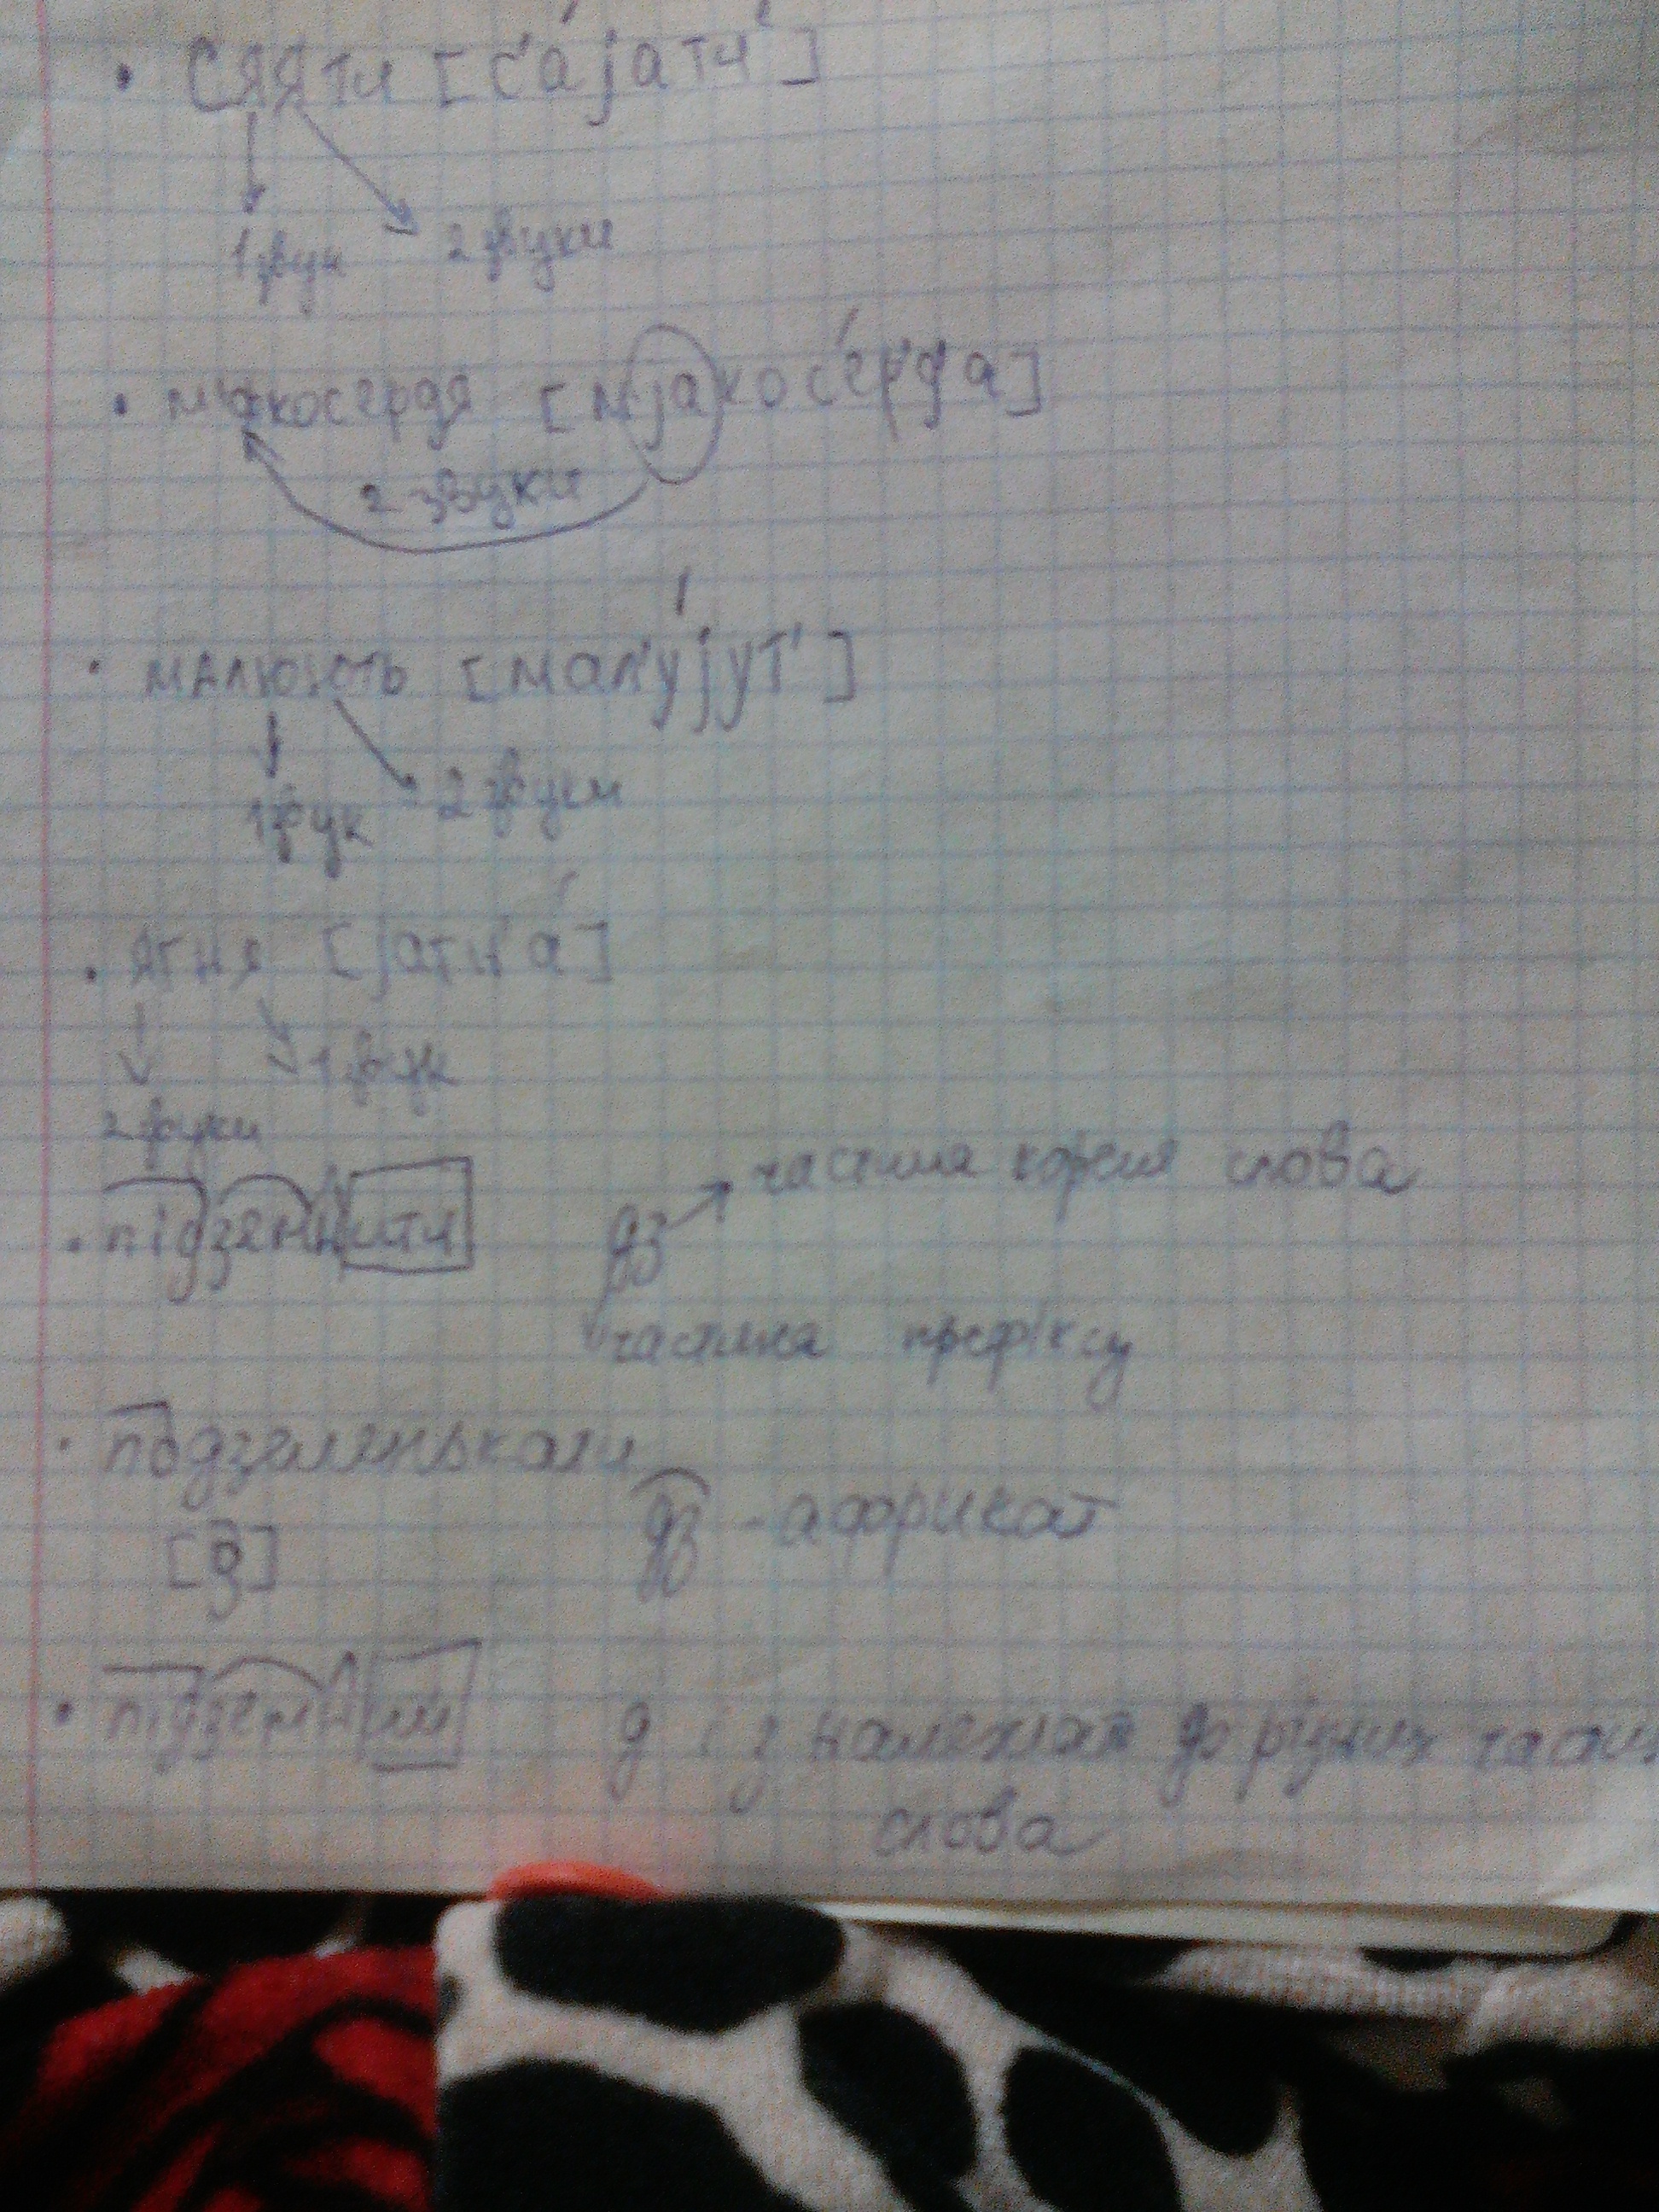 • СЯЯТИ [с'а́јати]
1 звук 2 звуки
• м'якосердя [мјакосе́рд'а]
2 звуки
• малюють [мал'у́јут']
1 звук 2 звуки
• ягня [јагн'а́]
1 звук
2 звуки
дз → частина кореня слова
• підземнити
частина префіксу
• подзеленькати
дз - африкат
[д]
• підземний д і з належать до різних
слова